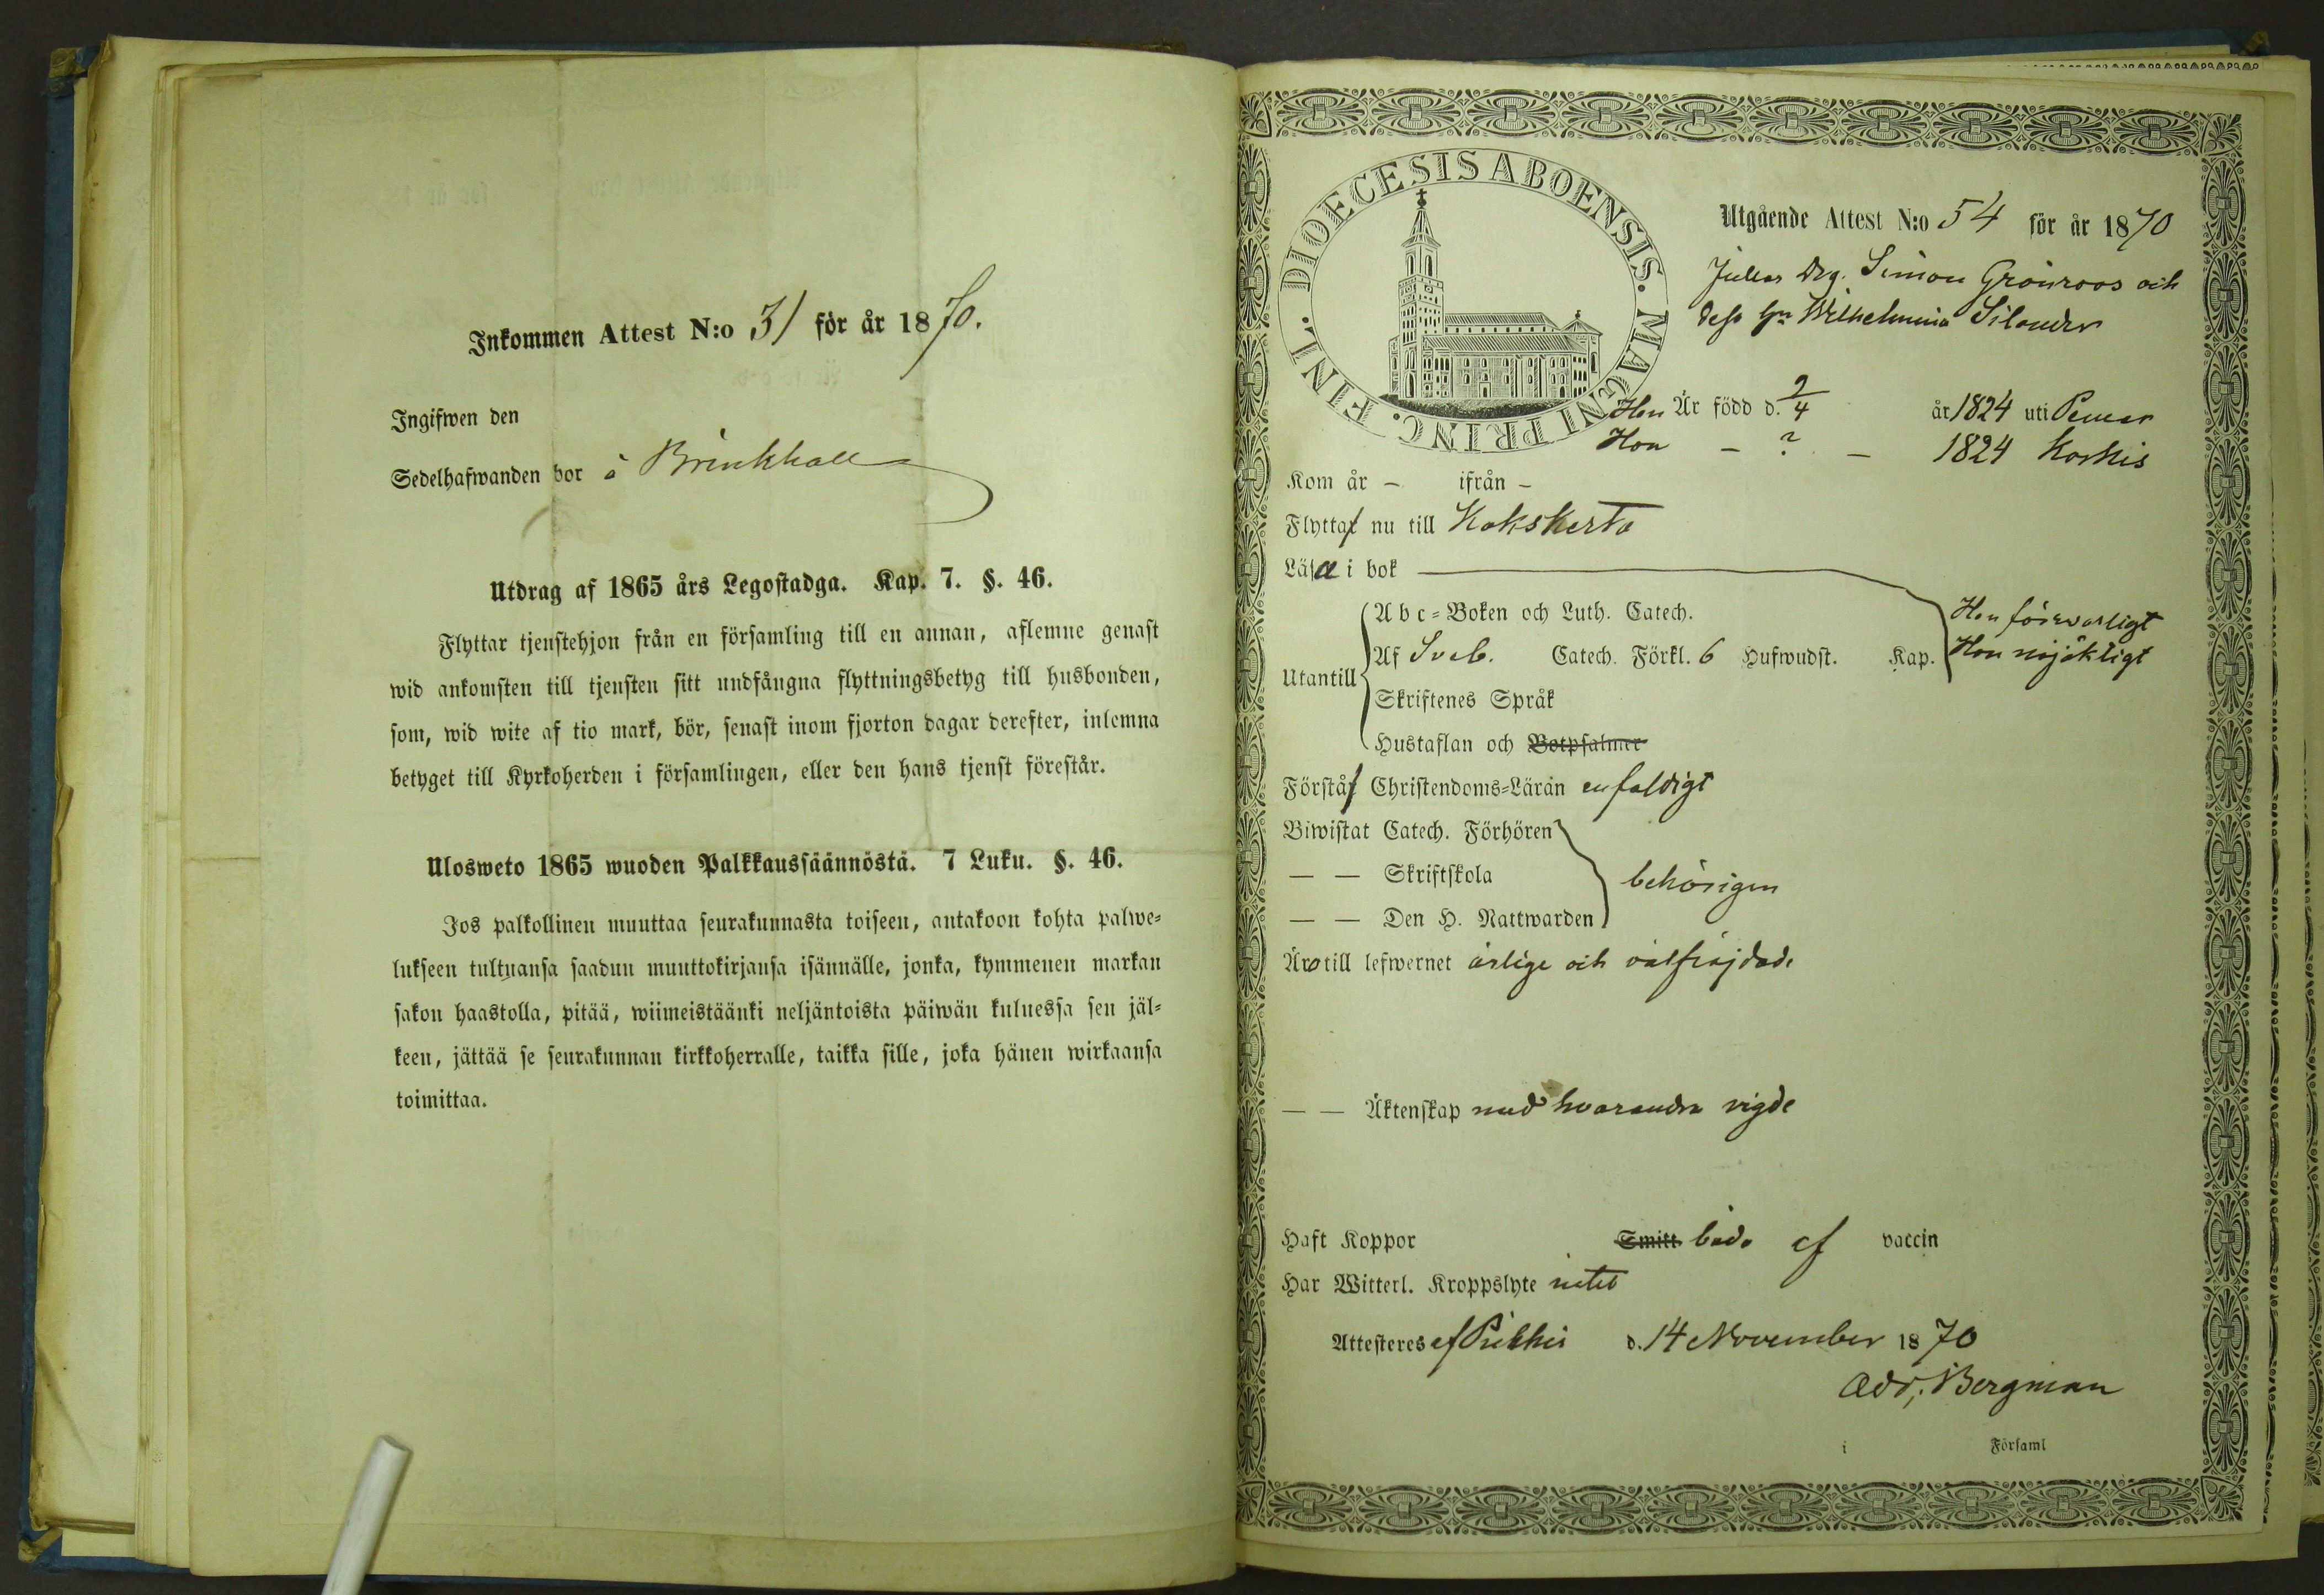 Inkommen Attest N:o 31 för år 1870.
Ingifwen den
Sedelhafwanden bor å Brinkhall
Utdrag af 1865 års Legostadga. Kap. 7. §. 46.
Flyttar tjenstehjon från en församling till en annan, aflemne genast
wid ankomsten till tjensten sitt undfångna flyttningsbetyg till husbonden,
som, wid wite af tio mark, bör, senast inom fjorton dagar derefter, inlemna
betyget till Kyrkoherden i församlingen, eller den hans tjenst förestår.
Ulosweto 1865 wuoden Palkkaussäännöstä. 7 Luku. §. 46.
Jos palkollinen muuttaa seurakunnasta toiseen, antakoon kohta palwe-
lukseen tultuansa saadun muuttokirjansa isännälle, jonka, kymmenen markan
sakon haastolla, pitää, wiimeistäänki neljäntoista päiwän kuluessa sen jäl-
keen, jättää se seurakunnan kirkkoherralle, taikka sille, joka hänen wirkaansa
toimittaa.
DIOECESIS ABOENSIS. MAGNI PRINC. FINL.
Utgående Attest N:o 54 för år 1870
Drg. Simon Grönroos och
dess hu Wilhelmina Silander
Han Är född d. 9/4 år 1824 uti Pemar
Hon - ? - 1824 Koskis
Kom år - ifrån -
Flytta nu till Kakskerta
Läsa i bok
Utantill
A b c-Boken och Luth. Catech.
Af Sveb. Catech. Förkl. 6 Hufwudst. Kap.
Skriftenes Språk
Hustaflan och Botpsalmer
Han försvarligt
Hon nöjaktigt
Förstå Christendoms-Läran enfaldigt
Biwistat Catech. Förhören
— — Skriftskola behörigen
— — Den H. Nattwarden
Äro till lefwernet ärlige och välfräjdade
— — Äktenskap med hvarandra vigde
Haft Koppor Smitt båda af vaccin
Har Witterl. Kroppslyte intet
Attesteras af Pikkis d. 14 November 1870
Adr. Bergman
i Församl